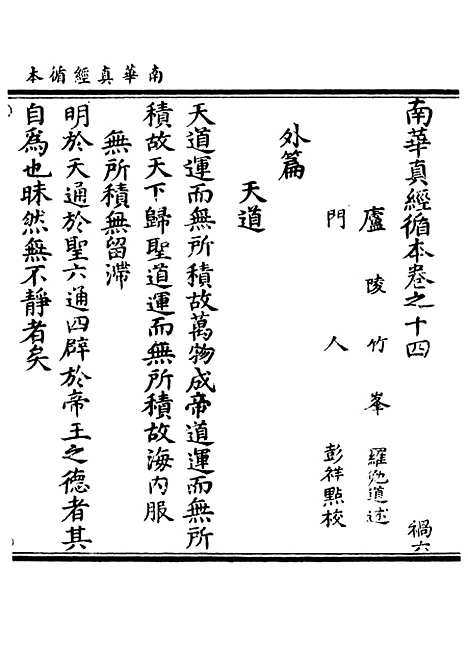 本循經真華南
南華真經循本卷之十四
禍六
廬陵竹峯 羅勉道述
門人 彭祥點校
外篇
天道
天道運而無所積故萬物成帝道運而無所
積故天下歸聖道運而無所積故海内服
無所積無留滯
明於天通於聖六通四辟於帝王之德者其
自為也昧然無不靜者矣